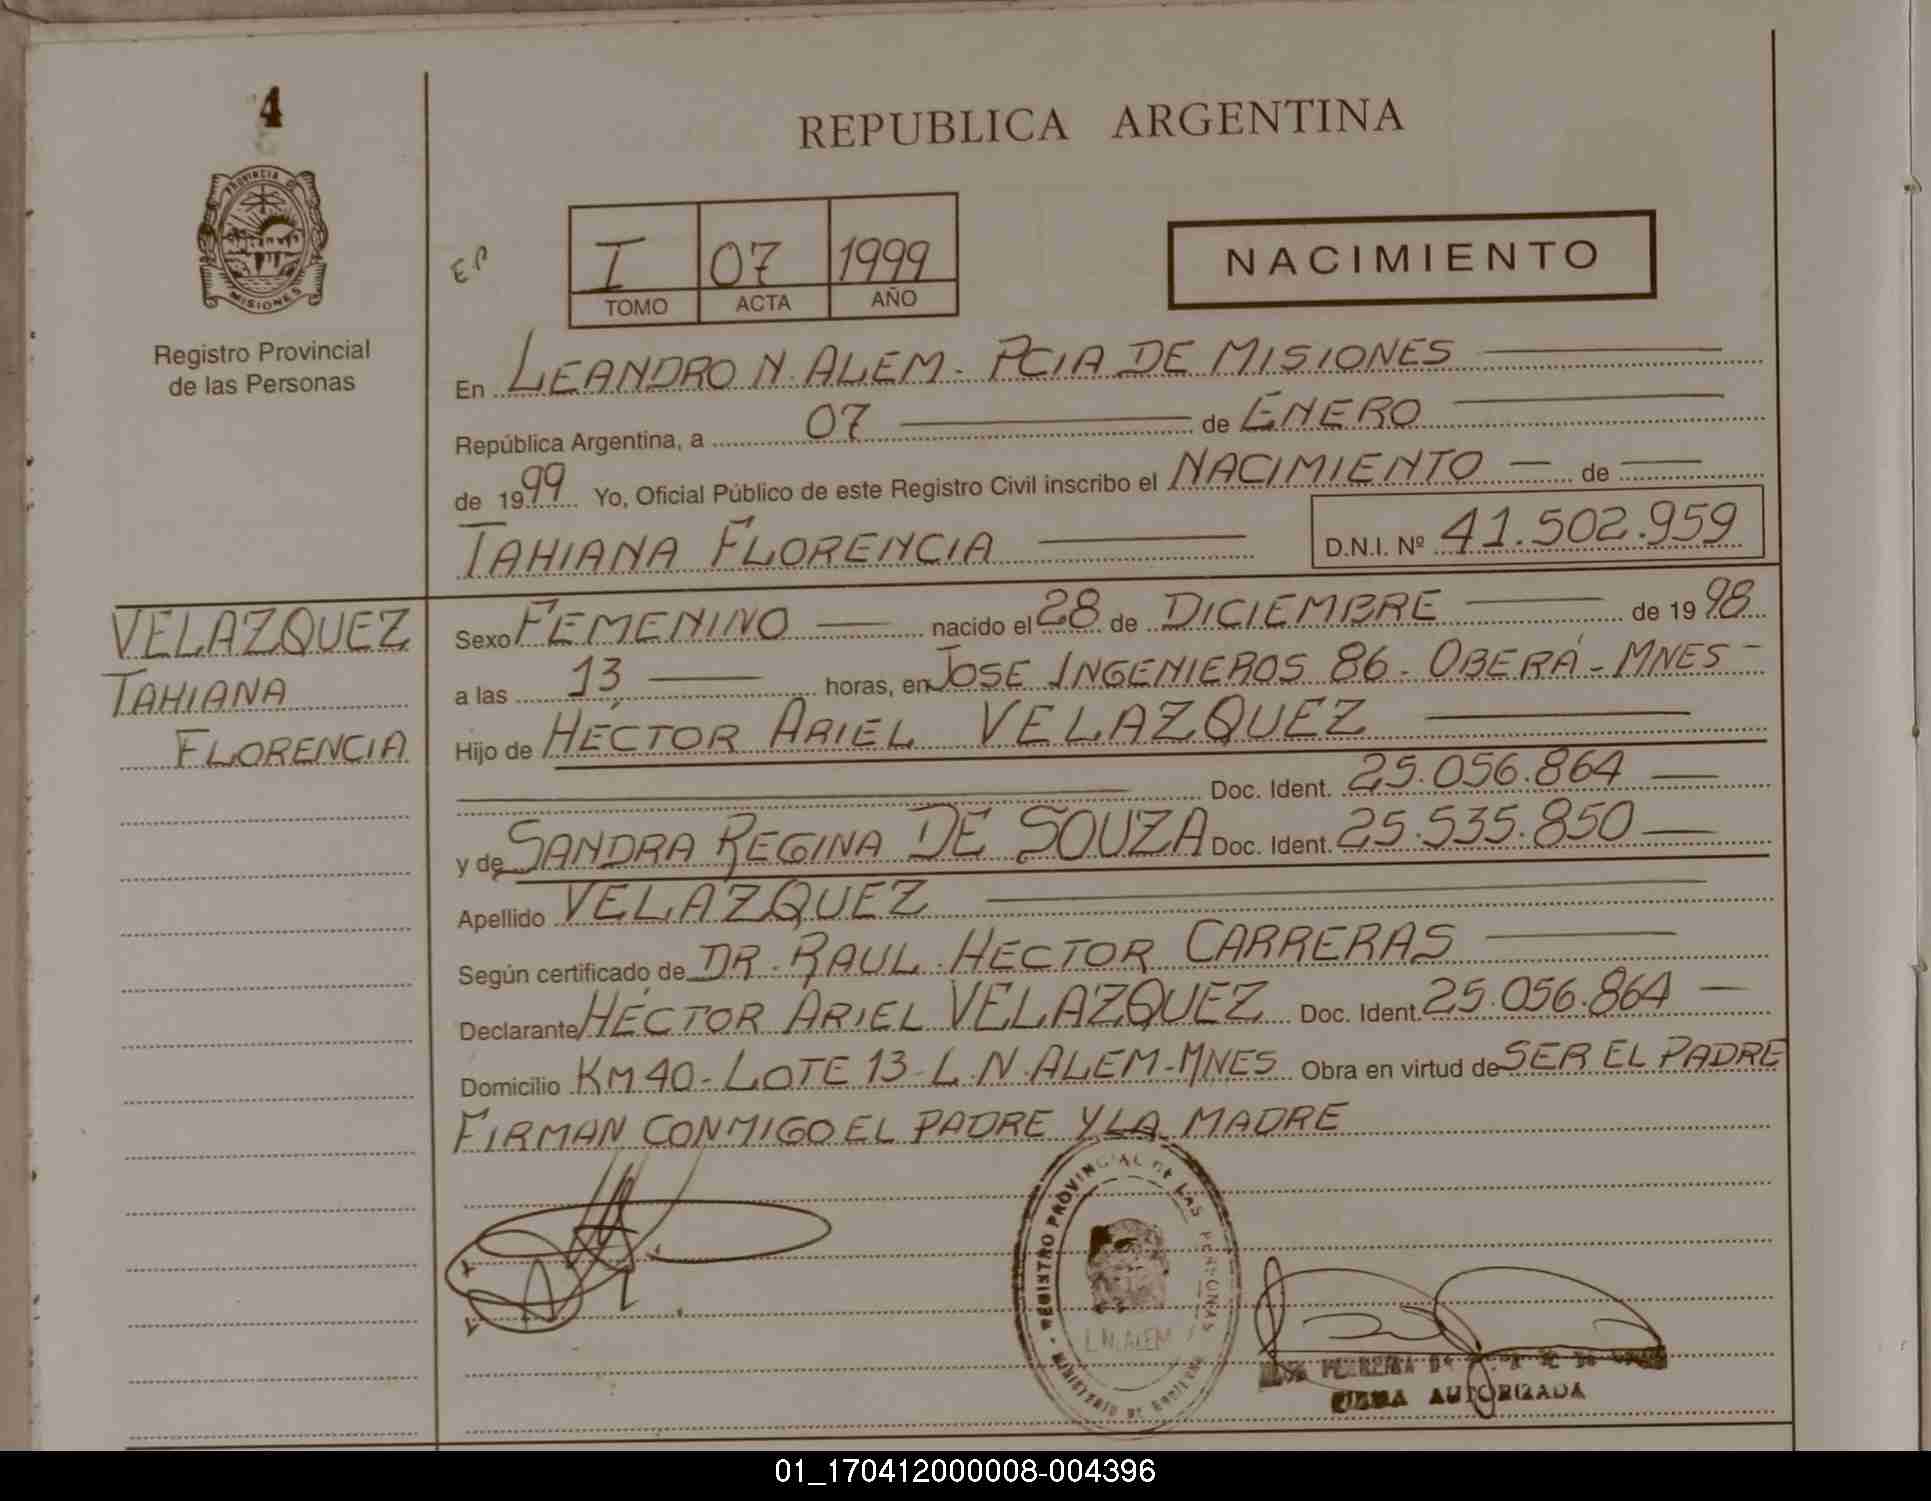 4
REPUBLICA ARGENTINA
PROVINCIA DE
MISIONES
Registro Provincial
de las Personas
I 07 1999
TOMO ACTA AÑO
NACIMIENTO
En LEANDRO N. ALEM - PCIA DE MISIONES
República Argentina, a 07 de ENERO
de 1999 Yo, Oficial Público de este Registro Civil inscribo el NACIMIENTO de
TAHIANA FLORENCIA D.N.I. Nº 41.502.959
VELAZQUEZ
TAHIANA
FLORENCIA
Sexo FEMENINO nacido el 28 de DICIEMBRE de 1998
a las 13 horas, en JOSE INGENIEROS 86 - OBERÁ - MNES -
Hijo de HÉCTOR ARIEL VELAZQUEZ
Doc. Ident. 25.056.864
y de SANDRA REGINA DE SOUZA Doc. Ident. 25.535.850
Apellido VELAZQUEZ
Según certificado de DR. RAUL HECTOR CARRERAS
Declarante HÉCTOR ARIEL VELAZQUEZ Doc. Ident. 25.056.864
Domicilio KM 40 - LOTE 13 - L.N. ALEM - MNES Obra en virtud de SER EL PADRE
FIRMAN CONMIGO EL PADRE Y LA MADRE
REGISTRO PROVINCIAL DE LAS PERSONAS
L.N. ALEM
MINISTERIO DE GOBIERNO
FIRMA AUTORIZADA
01_170412000008-004396